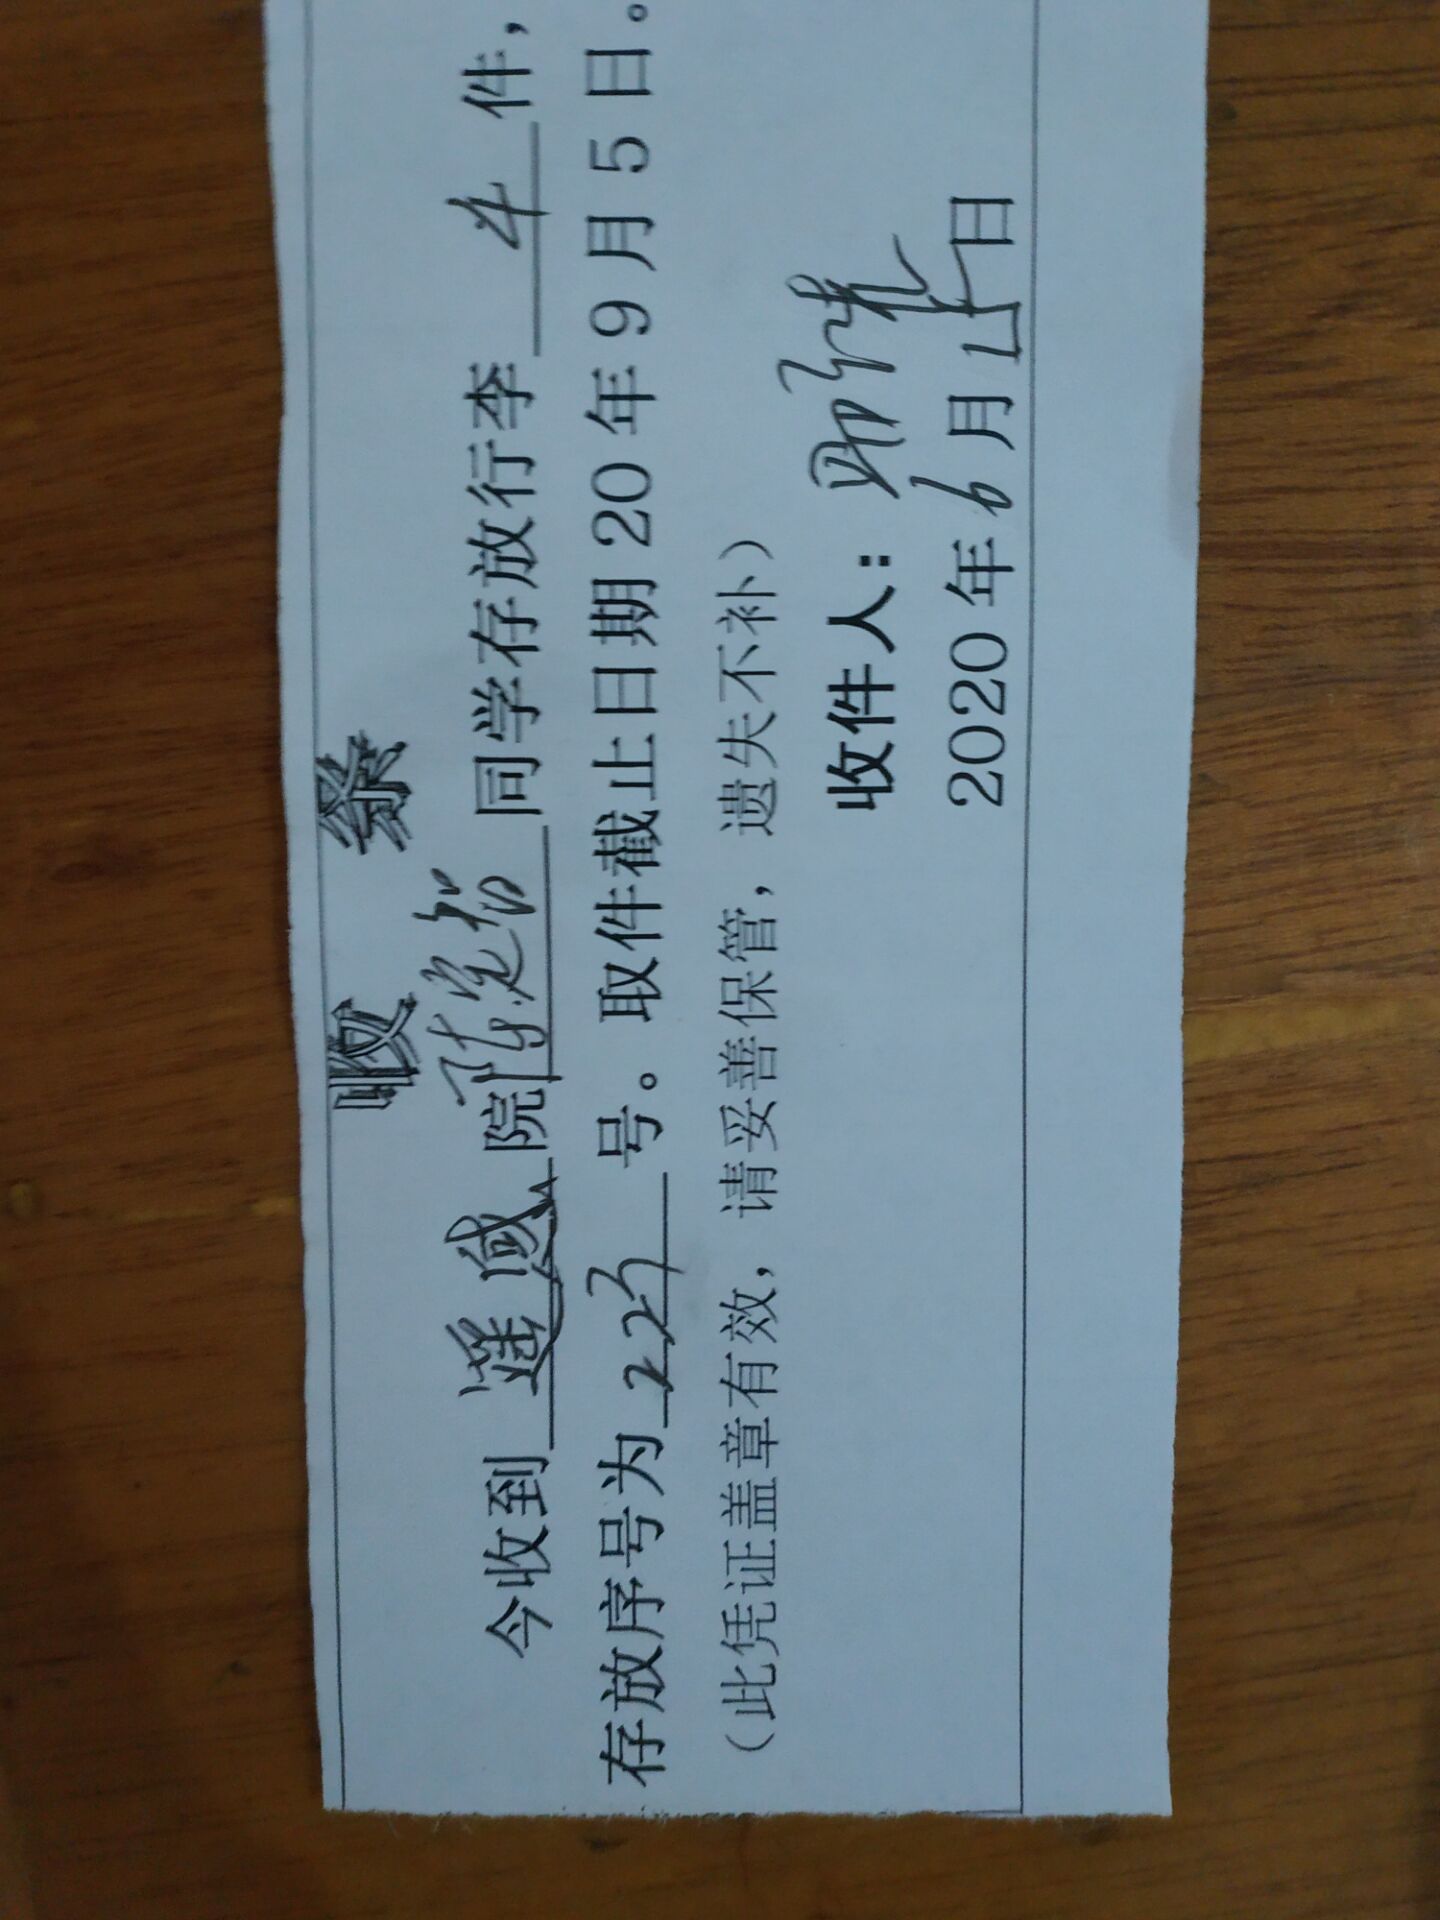 收 条
今收到 遥感 院 陈宪智 同学存放行李 4 件，
存放序号为 223 号。取件截止日期 20 年 9 月 5 日。
（此凭证盖章有效，请妥善保管，遗失不补）
收件人：
2020 年 6 月 15 日